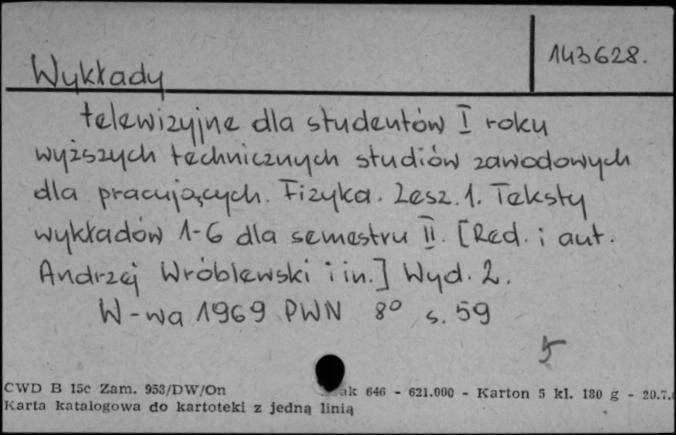 143628.
Wykłady
telewizyjne dla studentów I roku
wyższych technicznych studiów zawodowych
dla pracujących. Fizyka. Zesz. 1. Teksty
wykładów 1-6 dla semestru II. [Red. i aut.
Andrzej Wróblewski i in.] Wyd. 2.
W-wa 1969 PWN 8° s. 59
5
CWD B 15c Zam. 953/DW/On ak 646 - 621.000 - Karton 5 kl. 180 g - 20.7.
Karta katalogowa do kartoteki z jedną linią